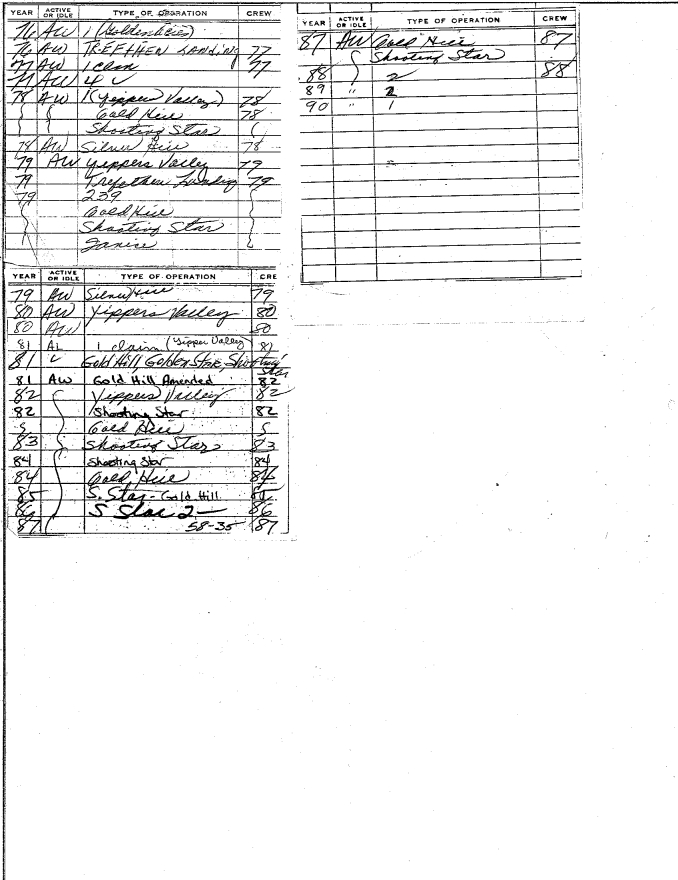 YEAR ACTIVE OR IDLE TYPE OF OPERATION CREW
76 AW 1 (Goldenbeis)
76 AW TREFTHEN LANDING 77
77 AW 1 clm 77
77 AW 4
78 AW 1 (Yipper Valley) 78
Gold Hill 78
Shooting Star
78 AW Silver Hill 78
79 AW Yippers Valley 79
79 Trefethen Landing 79
79 239
Gold Hill
Shooting Star
Janice
YEAR ACTIVE OR IDLE TYPE OF OPERATION CRE
79 AW Silver Hill 79
80 AW Yippers Valley 80
80 AW 80
81 AL 1 claim (Yipper Valley) 81
81 Gold Hill, Golden Star, Shooting Star
81 AW Gold Hill Amended 82
82 Yippers Valley 82
82 Shooting Star 82
Gold Hill
83 Shooting Star 83
84 Shooting Star 84
84 Gold Hill 84
85 S. Star - Gold Hill
86 S Star 2 86
87 58-35 87
YEAR ACTIVE OR IDLE TYPE OF OPERATION CREW
87 AW Gold Hill 87
Shooting Star
88 2 88
89 " 2
90 " 1